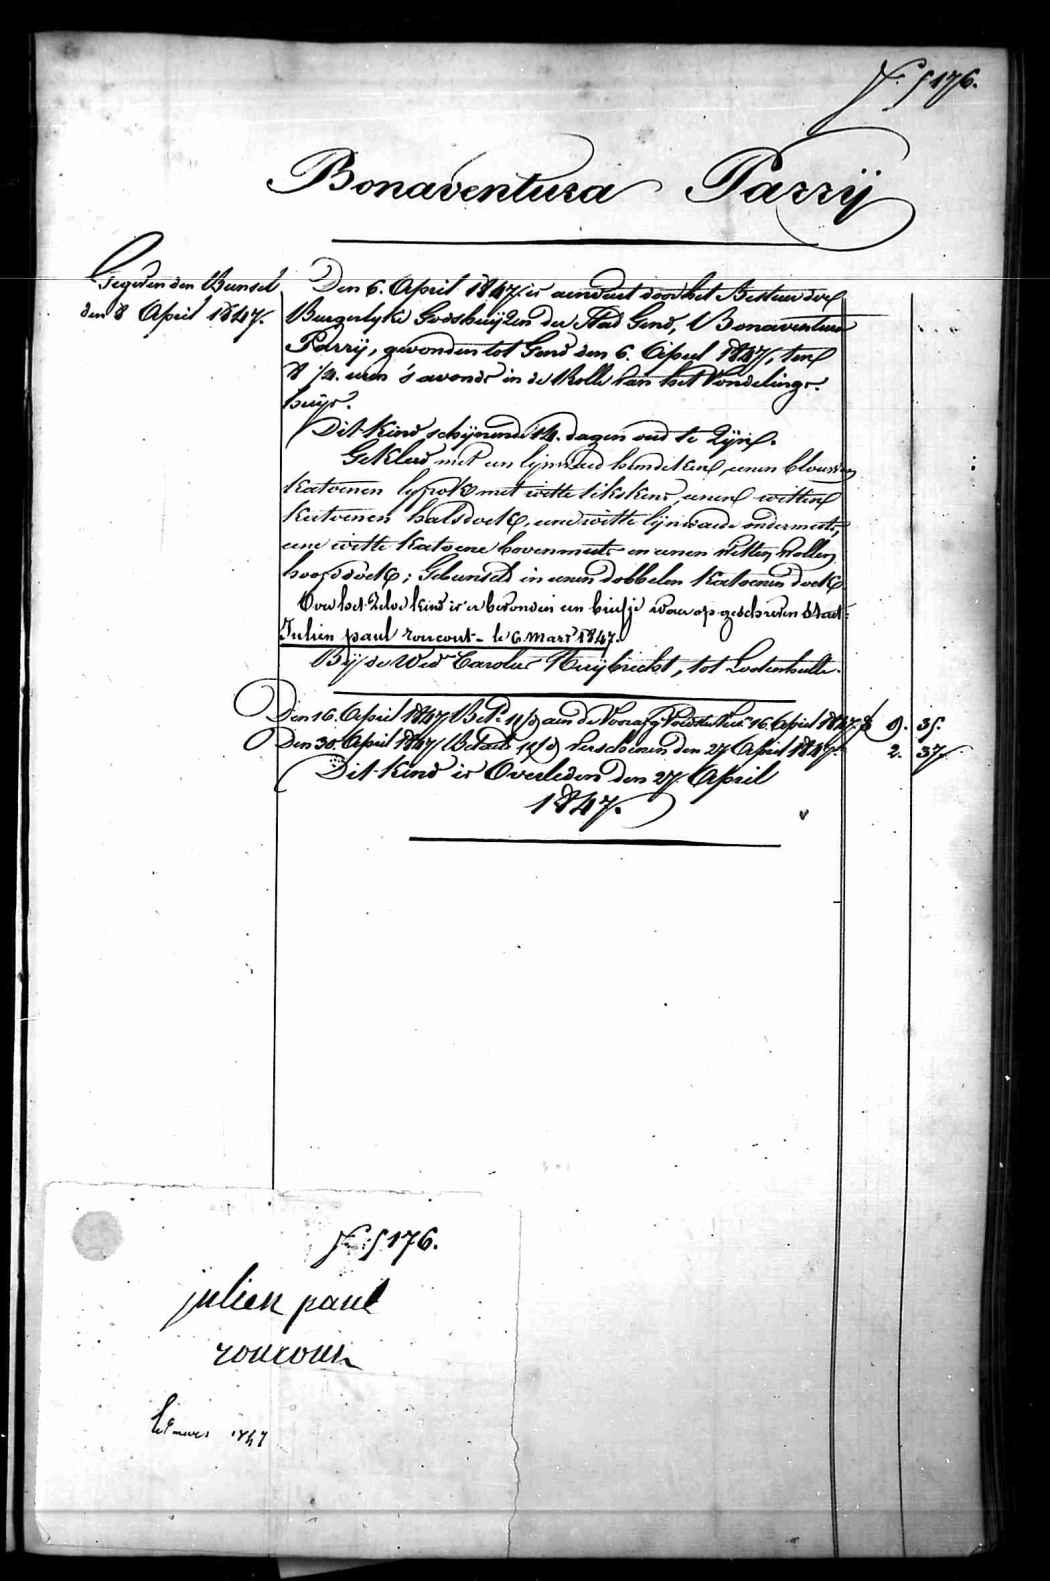 N.º 5176.
Bonaventura Parrÿ
Gegeven den Bunsel
den 8 April 1847.
Den 6. April 1847. is aenveert door het Bestuer der
Burgerlyke Godshuijzen der Stad Gend, Bonaventura
Parrÿ, gevonden tot Gend den 6. April 1847, ten
8 1/2. uren 's avonds in de Rolle van het Vondelings-
huijs.
Dit kind schijnende 14. dagen oud te Zÿn.
Gekleed met een lijnwaed hemdeken, eenen blouwen
katoenen lijfrok met witte likskens, eenen witten
katoenen halsdoek, eene witte lijnwaede ondermuts,
eene witte katoene bovenmuts en eenen witten wollen
hoofddoek; Gebunseld in eenen dobbelen katoenen doek
Over het zelve kind is er bevonden een briefje waer op geschreven staet:
Julien paul roucourt - le 6 mars 1847.
Bÿ de Wed.e Carolus Ruÿbrecht, tot Lootenhulle.
Den 16. April 1847 Bet.d aen de Voorzg. Voedster 16. April 1847. f 9. 35.
Den 30. April 1847 Betaeld verschenen den 27 April 1847. 2. 37
Dit kind is Overleden den 27. April
1847.
N.º 5176.
julien paul
roucourt
le 6 mars 1847